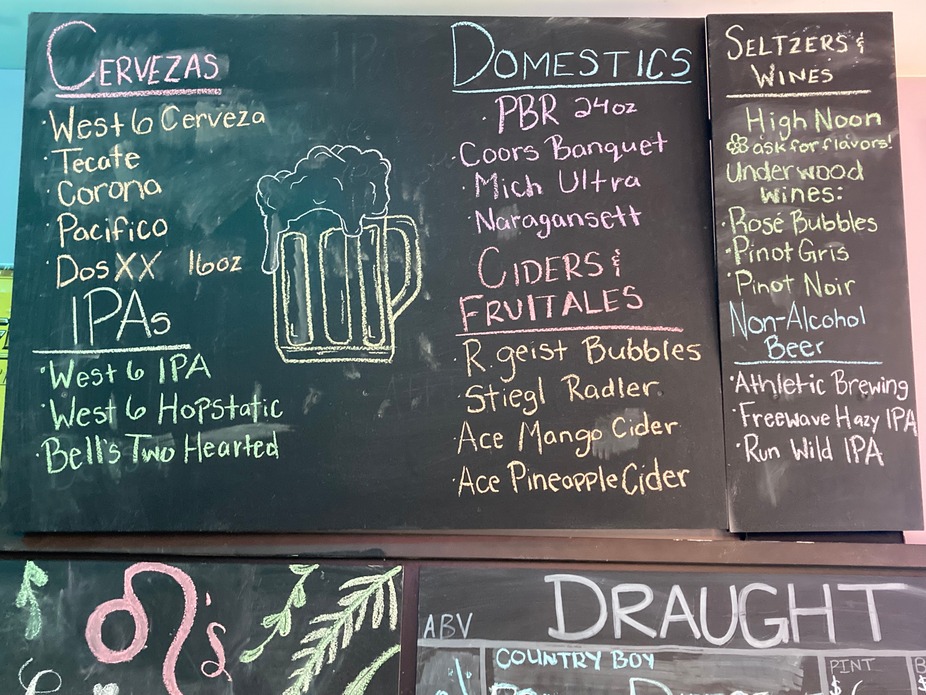 CERVEZAS
· West 6 Cerveza
· Tecate
· Corona
· Pacifico
· Dos XX 16oz
IPAs
· West 6 IPA
· West 6 Hopstatic
· Bell's Two Hearted
DOMESTICS
· PBR 24oz
· Coors Banquet
· Mich Ultra
· Naragansett
CIDERS &
FRUITALES
· R.geist Bubbles
· Stiegl Radler
· Ace Mango Cider
· Ace Pineapple Cider
SELTZERS &
WINES
High Noon
ask for flavors!
Underwood
wines:
· Rosé Bubbles
· Pinot Gris
· Pinot Noir
Non-Alcohol
Beer
· Athletic Brewing
· Freewave Hazy IPA
· Run Wild IPA
's
DRAUGHT
ABV
COUNTRY BOY
PINT
%
$